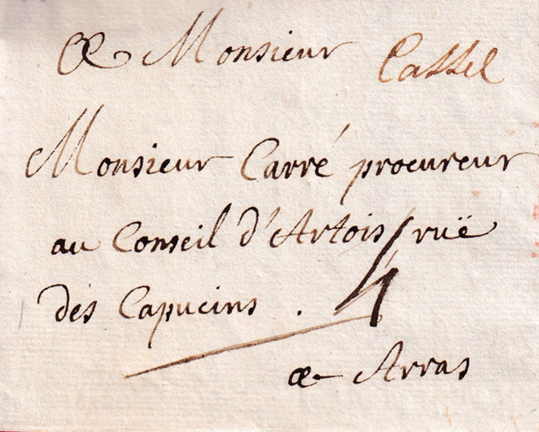 A Monsieur Cassel
Monsieur Carré procureur
au Conseil d'Artois ruë
des Capucins . 4
a Arras